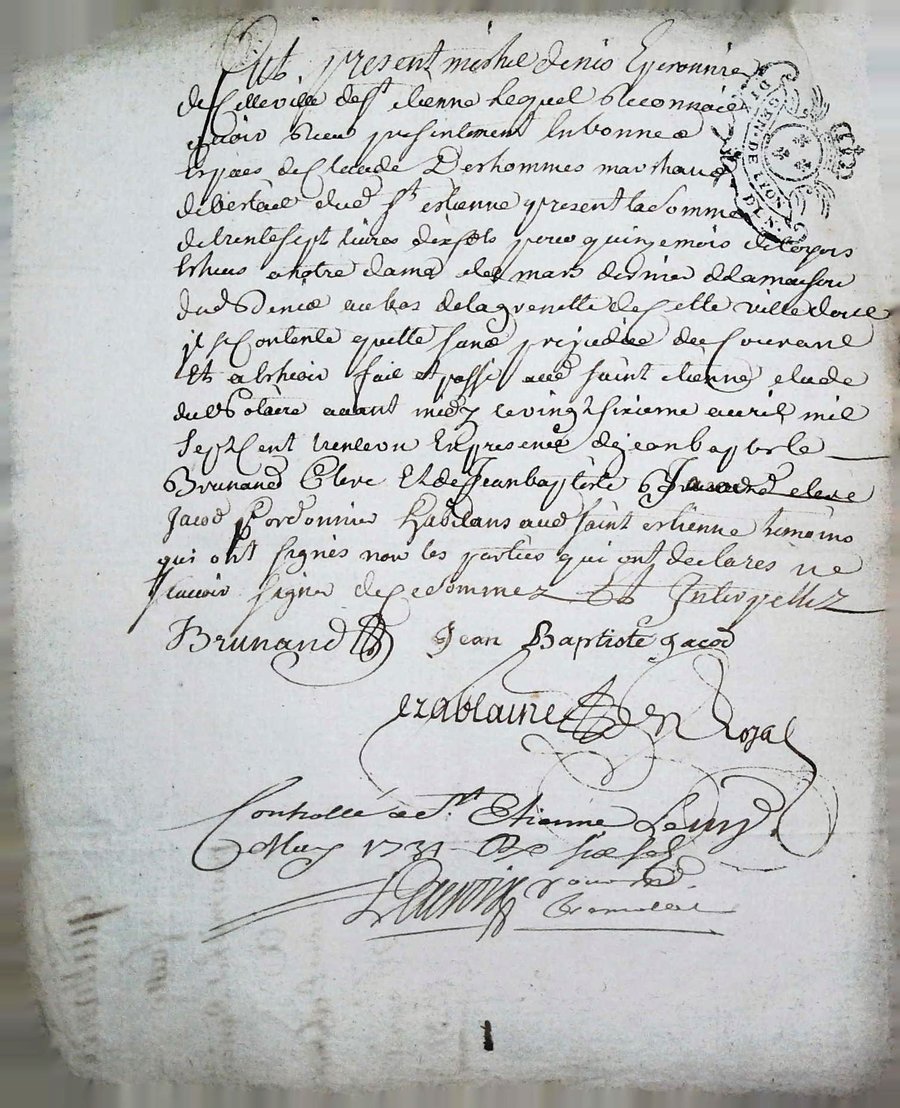 fut present michel denis Eperonnier
de cette ville de st etienne lequel a reconnu
avoir receu presentement en bonnes
especes de claude Deshommes marchand
de bertail dud st estienne present la somme
de trente sept livres dix sols pour quinze mois de loyers
echeus a notre dame de mars dernier de la maison
dud denis au bas de la grenette de cette ville dont
il se contente quitte sans prejudice du courant
Et a escheoir fait et passé aud saint etienne etude
du No.laire avant midy le vingt sixieme avril mil
sept cent trente un En presence de jean baptiste
Brunand Clerc Et de Jean baptiste
Jacod Cordonnier habitans aud saint estienne temoins
qui ont signés non les parties qui ont declares ne
scavoir signer de ce sommez Et Interpellez
Brunand Jean Baptiste Jacod
ezablaine Nre Royal
Controllé a St. Etienne Le
May 1731 six sols